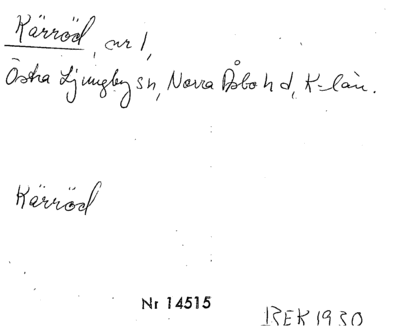 Kärröd, nr 1,
Östra Ljungby sn, Norra Åsbo hd, K-län.
Kärröd
Nr 14515
REK 1930